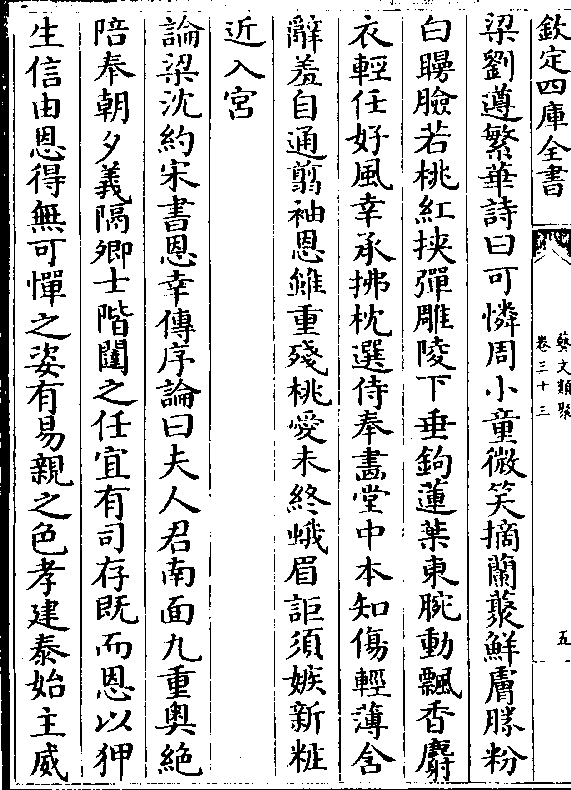 欽定四庫全書
藝文類聚
卷三十三
五
梁劉遵繁華詩曰可憐周小童微笑摘蘭藂鮮膚勝粉
白𦢊臉若桃紅挾彈雕陵下垂鉤蓮葉東腕動飄香麝
衣輕任好風幸承拂枕選侍奉畫堂中本知傷輕薄含
辭羞自通剪袖恩雖重殘桃愛未終蛾眉詎須嫉新粧
近入宮
論梁沈約宋書恩幸傳序論曰夫人君南面九重奧絶
陪奉朝夕義隔卿士階闥之任宜有司存既而恩以狎
生信由恩得無可憚之姿有易親之色孝建泰始主威